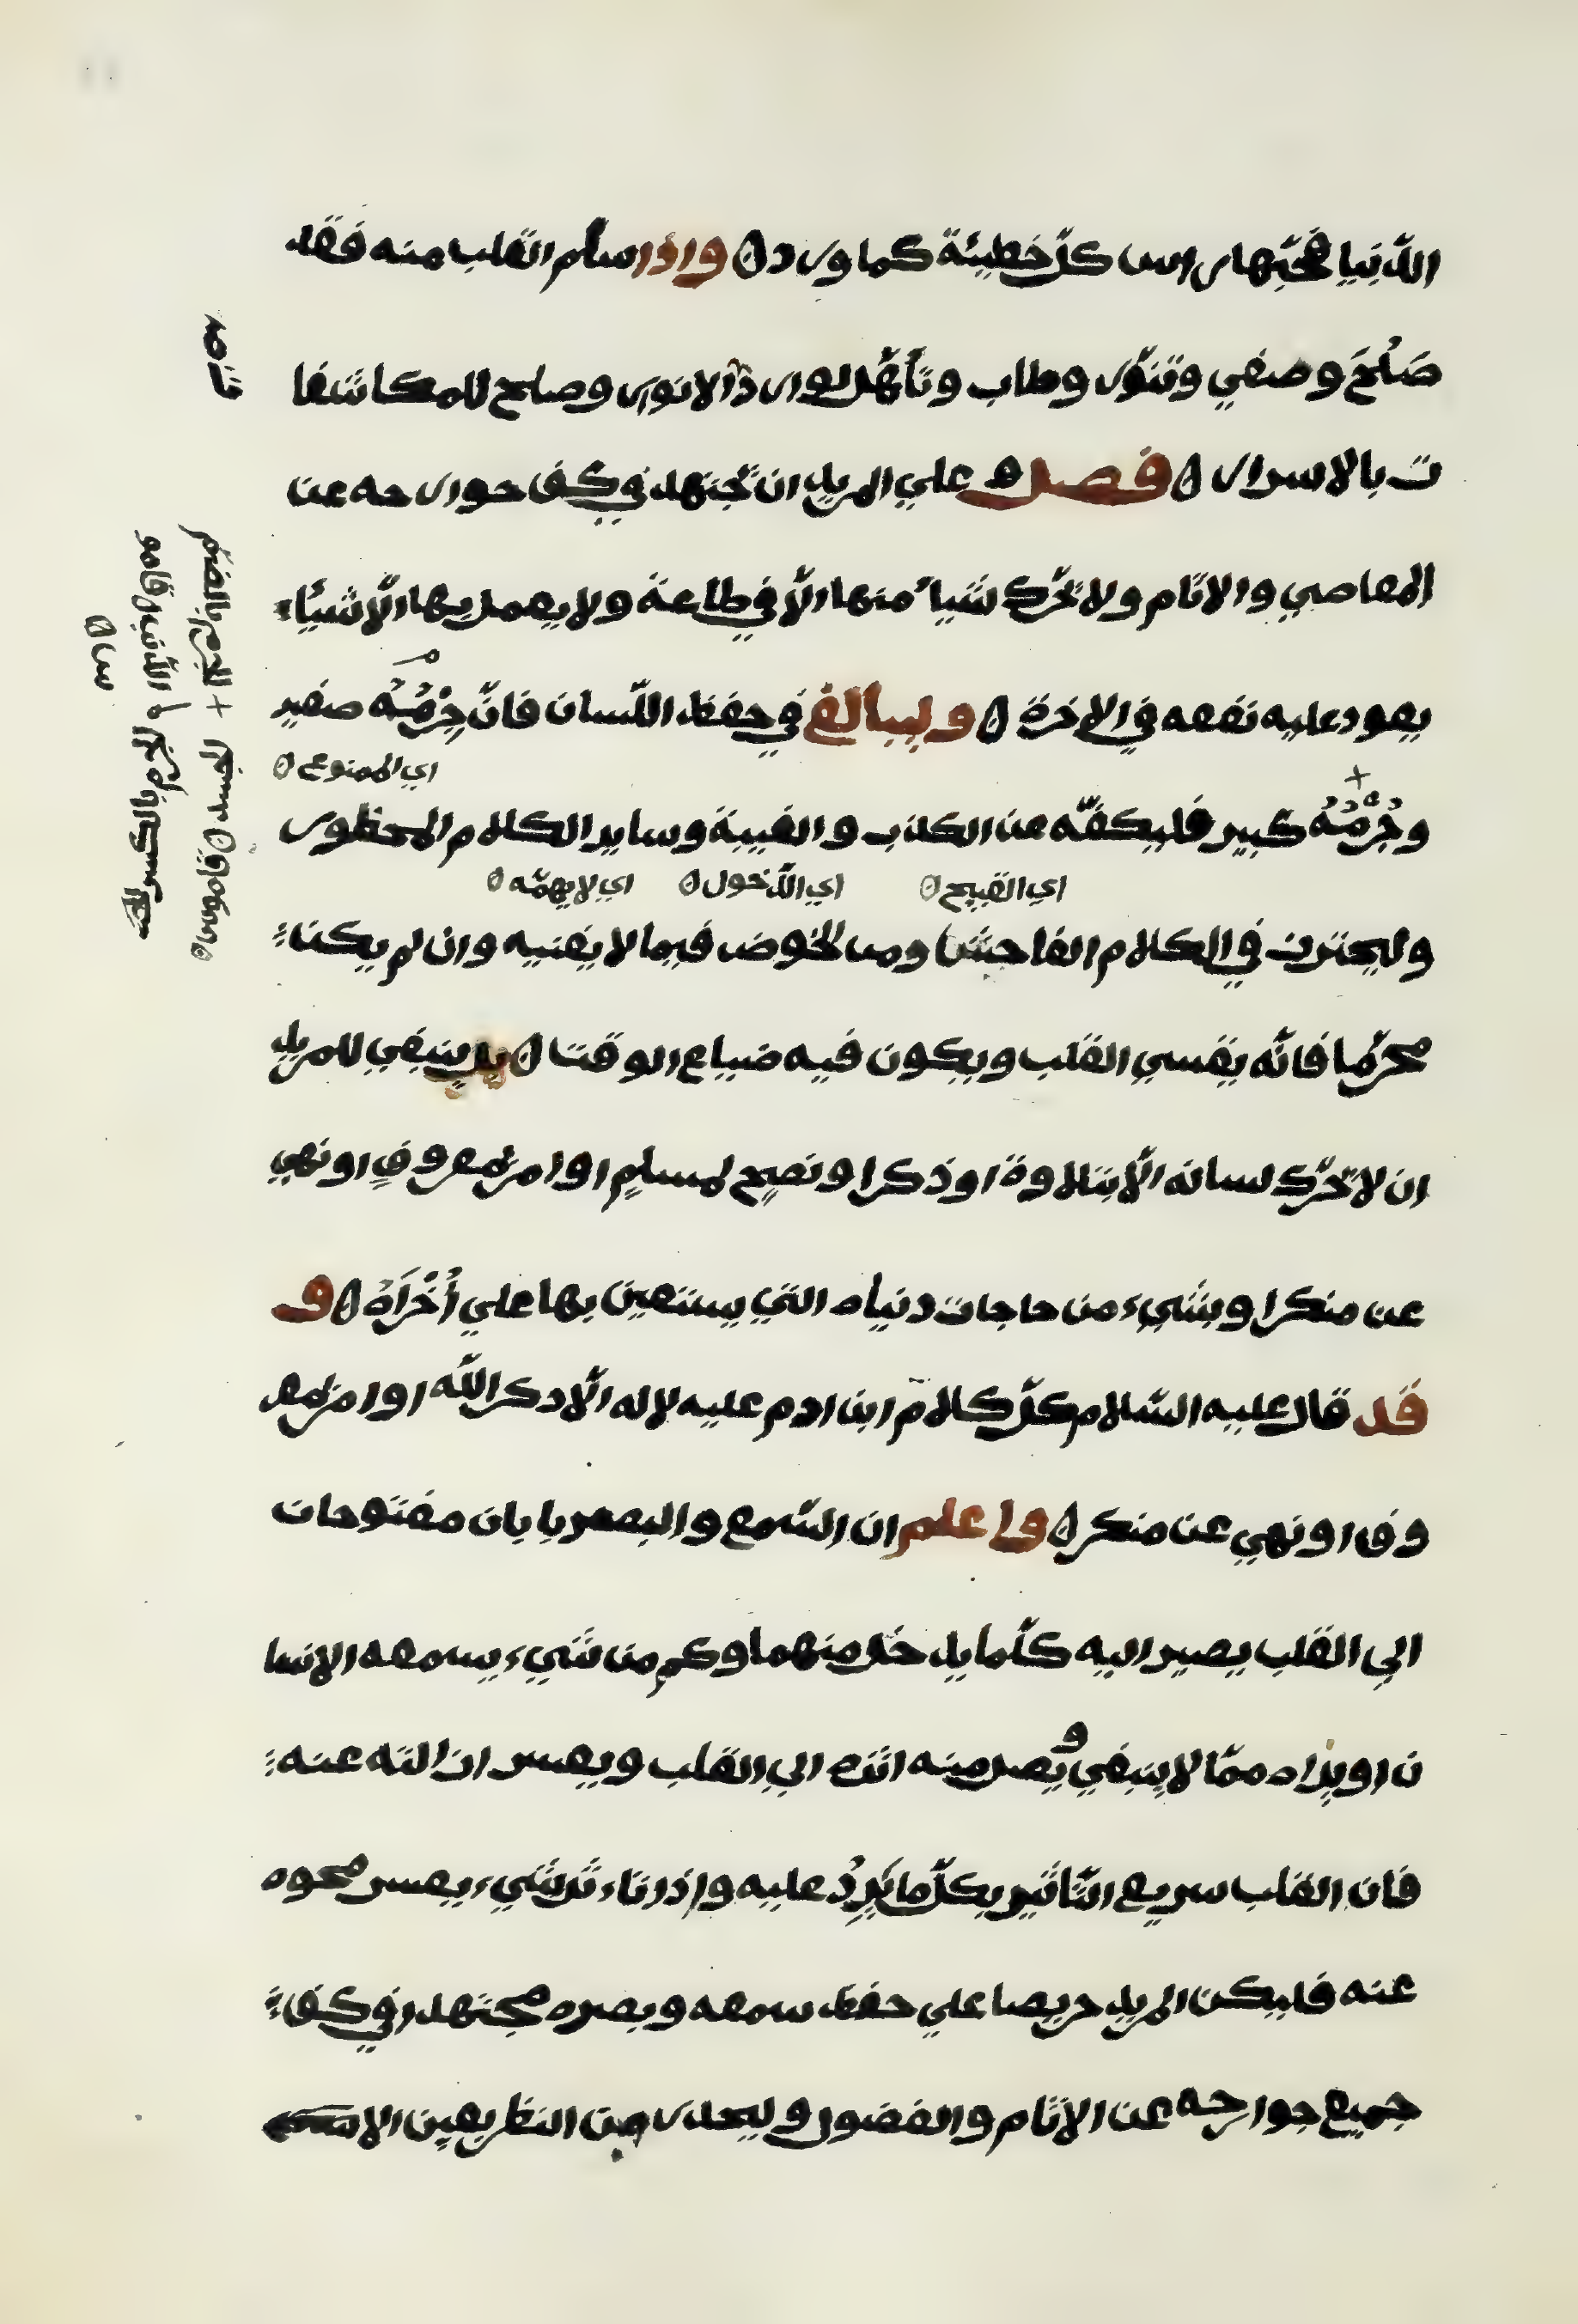 الدّنيا فحبّها راس كلّ خطيئة كما ورد ۞ واذا سلم القلب منه فقد
صَلُحَ وصفي وتنوّر وطاب وتأهّل لواردٓ الانوار وصلح للمكاشفا
ت بالاسرار ۞ فصل ۞ علي المريد ان تجتهد في كف جوارحه عن
المعاصي والاثام ولا تحرّك شيأ منها الّا في طاعة ولا يعمل بها الّا شيئا
يعود عليه نفعه في الاخرة ۞ وليبالغ في حفظ اللّسان فانّ جِرْمُهُ صغير
اي الممنوع ۞
وجُرْمُهُ كبير فليكفّه عن الكذب والغيبة وساير الكلام المحظور
اي القبيح ۞ اي الدّخول ۞ اي لا يهمّه ۞
وليحترز في الكلام الفاحش ومن الخوض فيما لا يعنيه وان لم يكن
محرّما فانّه يقسي القلب ويكون فيه ضياع الوقت ۞ بل ينبغي للمريد
ان لا تحرّك لسانه الّا بتلاوة او ذكر او نصح لمسلمٍ او امر بمعروفٍ او نهي
عن منكر او بشيء من حاجات دنياه التي يستعين بها علي أُخْرَاهُ ۞ و
قد قال عليه السّلام كلّ كلام ابن ادم عليه لا له الّا ذكر اللّه او امر بمعر
وف او نهي عن منكر ۞ واعلم ان السّمع والبصر بابان مفتوحان
الي القلب يصير اليه كلّما يدخل منهما وكم من شيء يسمعه الانسا
ن او يراه ممّا لا ينبغي و يصل منه اثره الي القلب ويعسر ازالته عنه
فان القلب سريع التّأثير بكلّ ما يَرِدُ عليه واذا تاءثر شيء يعسر محوه
عنه فليكن المريد حريصا علي حفظ سمعه وبصره مجتهدا في كف
جميع جوارحه عن الاثام والفضول وليحذر من النظر بعين الا